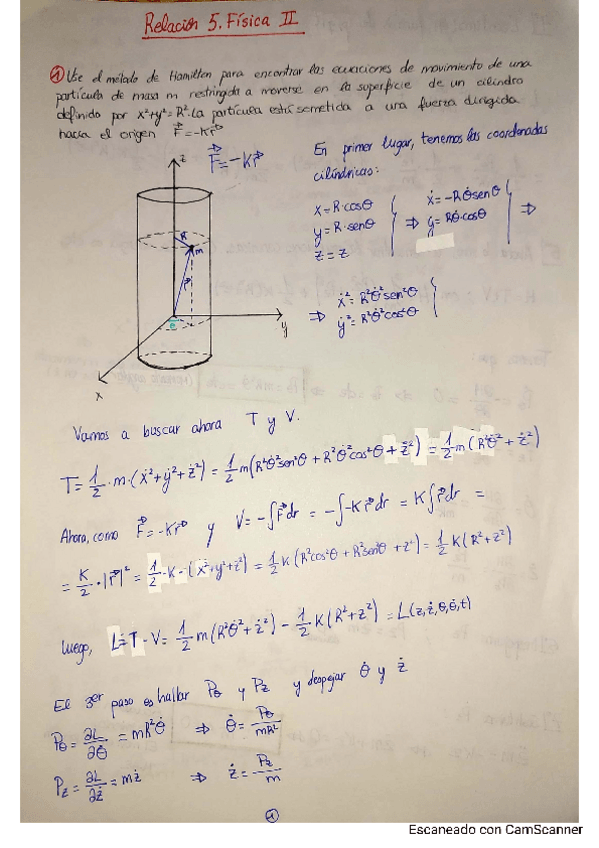 Relación 5. Física II
① Use el método de Hamilton para encontrar las ecuaciones de movimiento de una
partícula de masa m restringida a moverse en la superficie de un cilindro
definido por x²+y²=R². La partícula está sometida a una fuerza dirigida
hacia el origen F⃗=-Kr⃗
F⃗=-Kr⃗
En primer lugar, tenemos las coordenadas
cilíndricas:
x=R·cosθ
y=R·senθ
z=z
⇒ ẋ=-Rθ̇senθ
ẏ=Rθ̇·cosθ
⇒
⇒ ẋ²=R²θ̇²sen²θ
ẏ²=R²θ̇²cos²θ
z
R
m
r⃗
θ
y
x
Vamos a buscar ahora T y V.
T=1/2·m·(ẋ²+ẏ²+ż²)=1/2m(R²θ̇²sen²θ+R²θ̇²cos²θ+ż²)=1/2m(R²θ̇²+ż²)
Ahora, como F⃗=-Kr⃗ y V=-∫F⃗dr=-∫-Kr⃗dr=K∫r⃗dr=
=K/2·|r⃗|²=1/2·K·(x²+y²+z²)=1/2K(R²cos²θ+R²sen²θ+z²)=1/2K(R²+z²)
Luego, L=T-V=1/2m(R²θ̇²+ż²)-1/2K(R²+z²)=L(z,ż,θ,θ̇,t)
El 3er paso es hallar Pθ y Pz y despejar θ̇ y ż
Pθ=∂L/∂θ̇=mR²θ̇ ⇒ θ̇=Pθ/mR²
Pz=∂L/∂ż=mż ⇒ ż=Pz/m
①
Escaneado con CamScanner